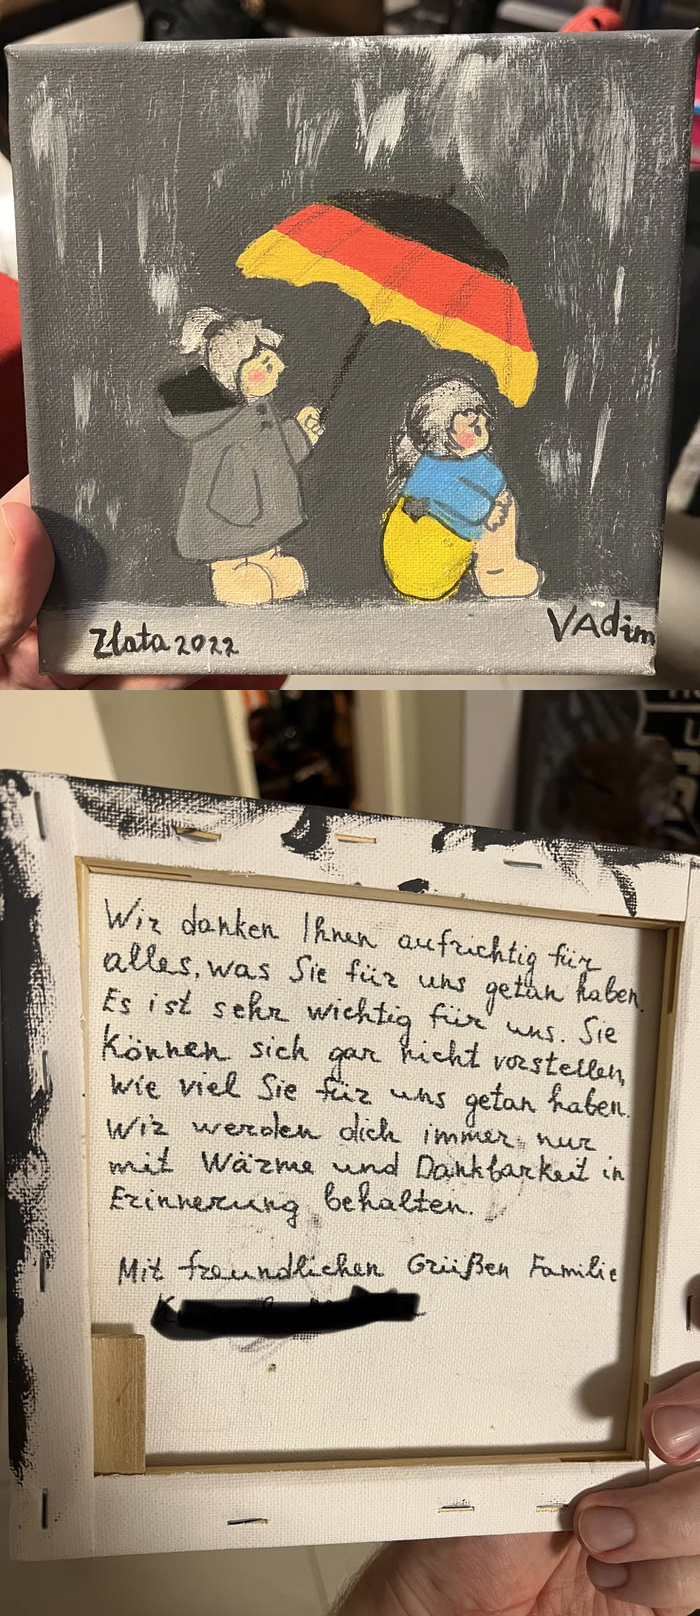 Zlata 2022
VAdim
Wir danken Ihnen aufrichtig für
alles, was Sie für uns getan haben.
Es ist sehr wichtig für uns. Sie
können sich gar nicht vorstellen,
wie viel Sie für uns getan haben.
Wir werden dich immer nur
mit Wärme und Dankbarkeit in
Erinnerung behalten.
Mit freundlichen Grüßen Familie